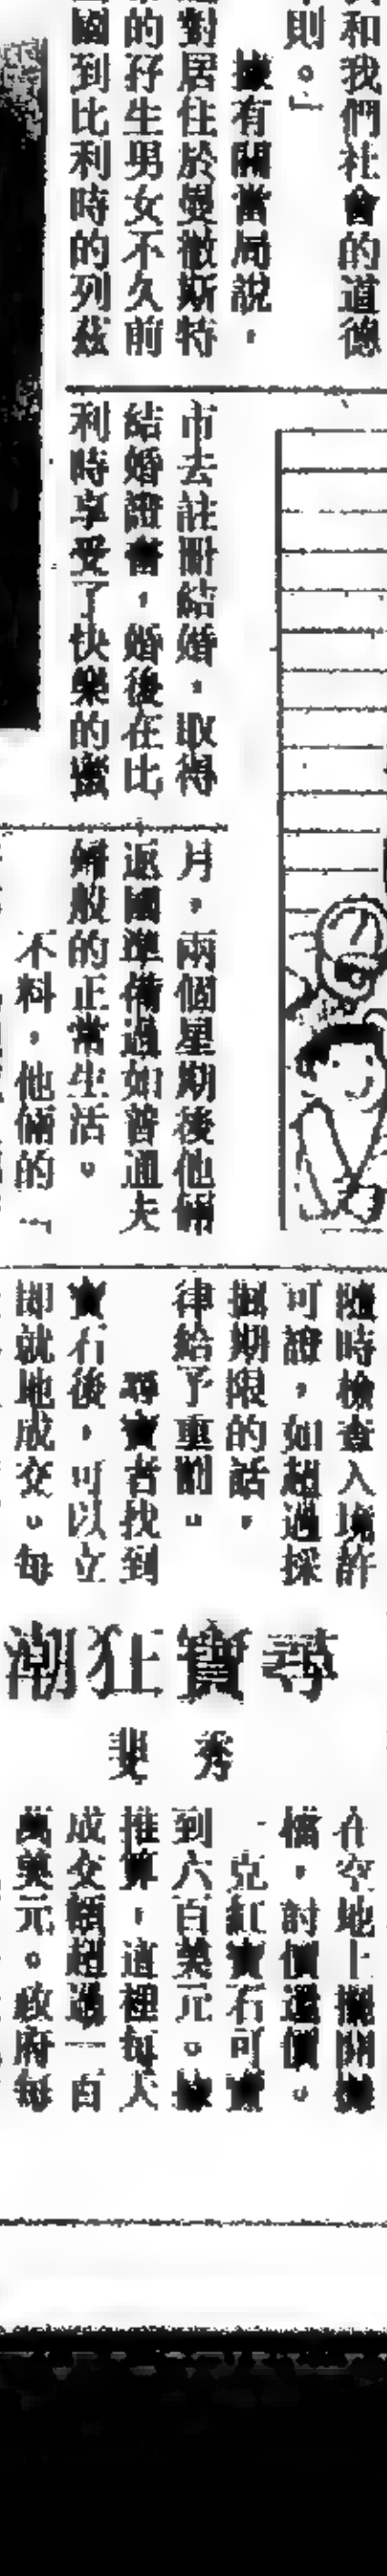 和我們社會的道德
則。」
據有關當局說，
對居住於曼徹斯特
的孖生男女不久前
國到比利時的列茲
市去註冊結婚，取得
結婚證書，婚後在比
利時享受了快樂的蜜
月，兩個星期後他倆
返國準備過如普通夫
婦般的正常生活。
不料，他倆的「
隨時檢查入境許
可證，如超過採
掘期限的話，
律給予重罰。
尋寶者找到
寶石後，可以立
即就地成交。每
尋寶狂潮
秀斐
在空地上擺開攤
檔，討價還價。
一克紅寶石可賣
到六百美元。據
推算，這裡每人
成交額超過一百
萬美元。政府每